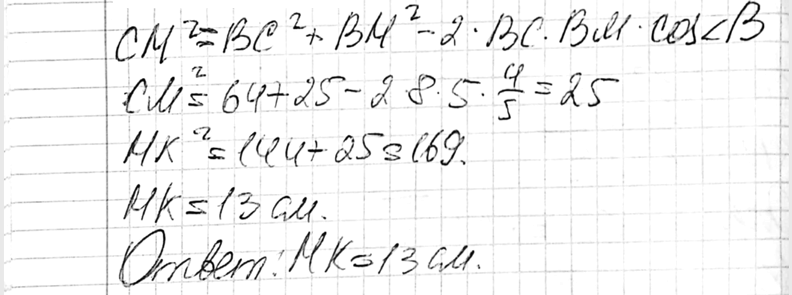 CM²=BC²+BM²-2·BC·BM·cos<B
CM²=64+25-2 8·5·4/5=25
MK²=144+25=169.
MK=13 см.
Ответ: MK=13 см.